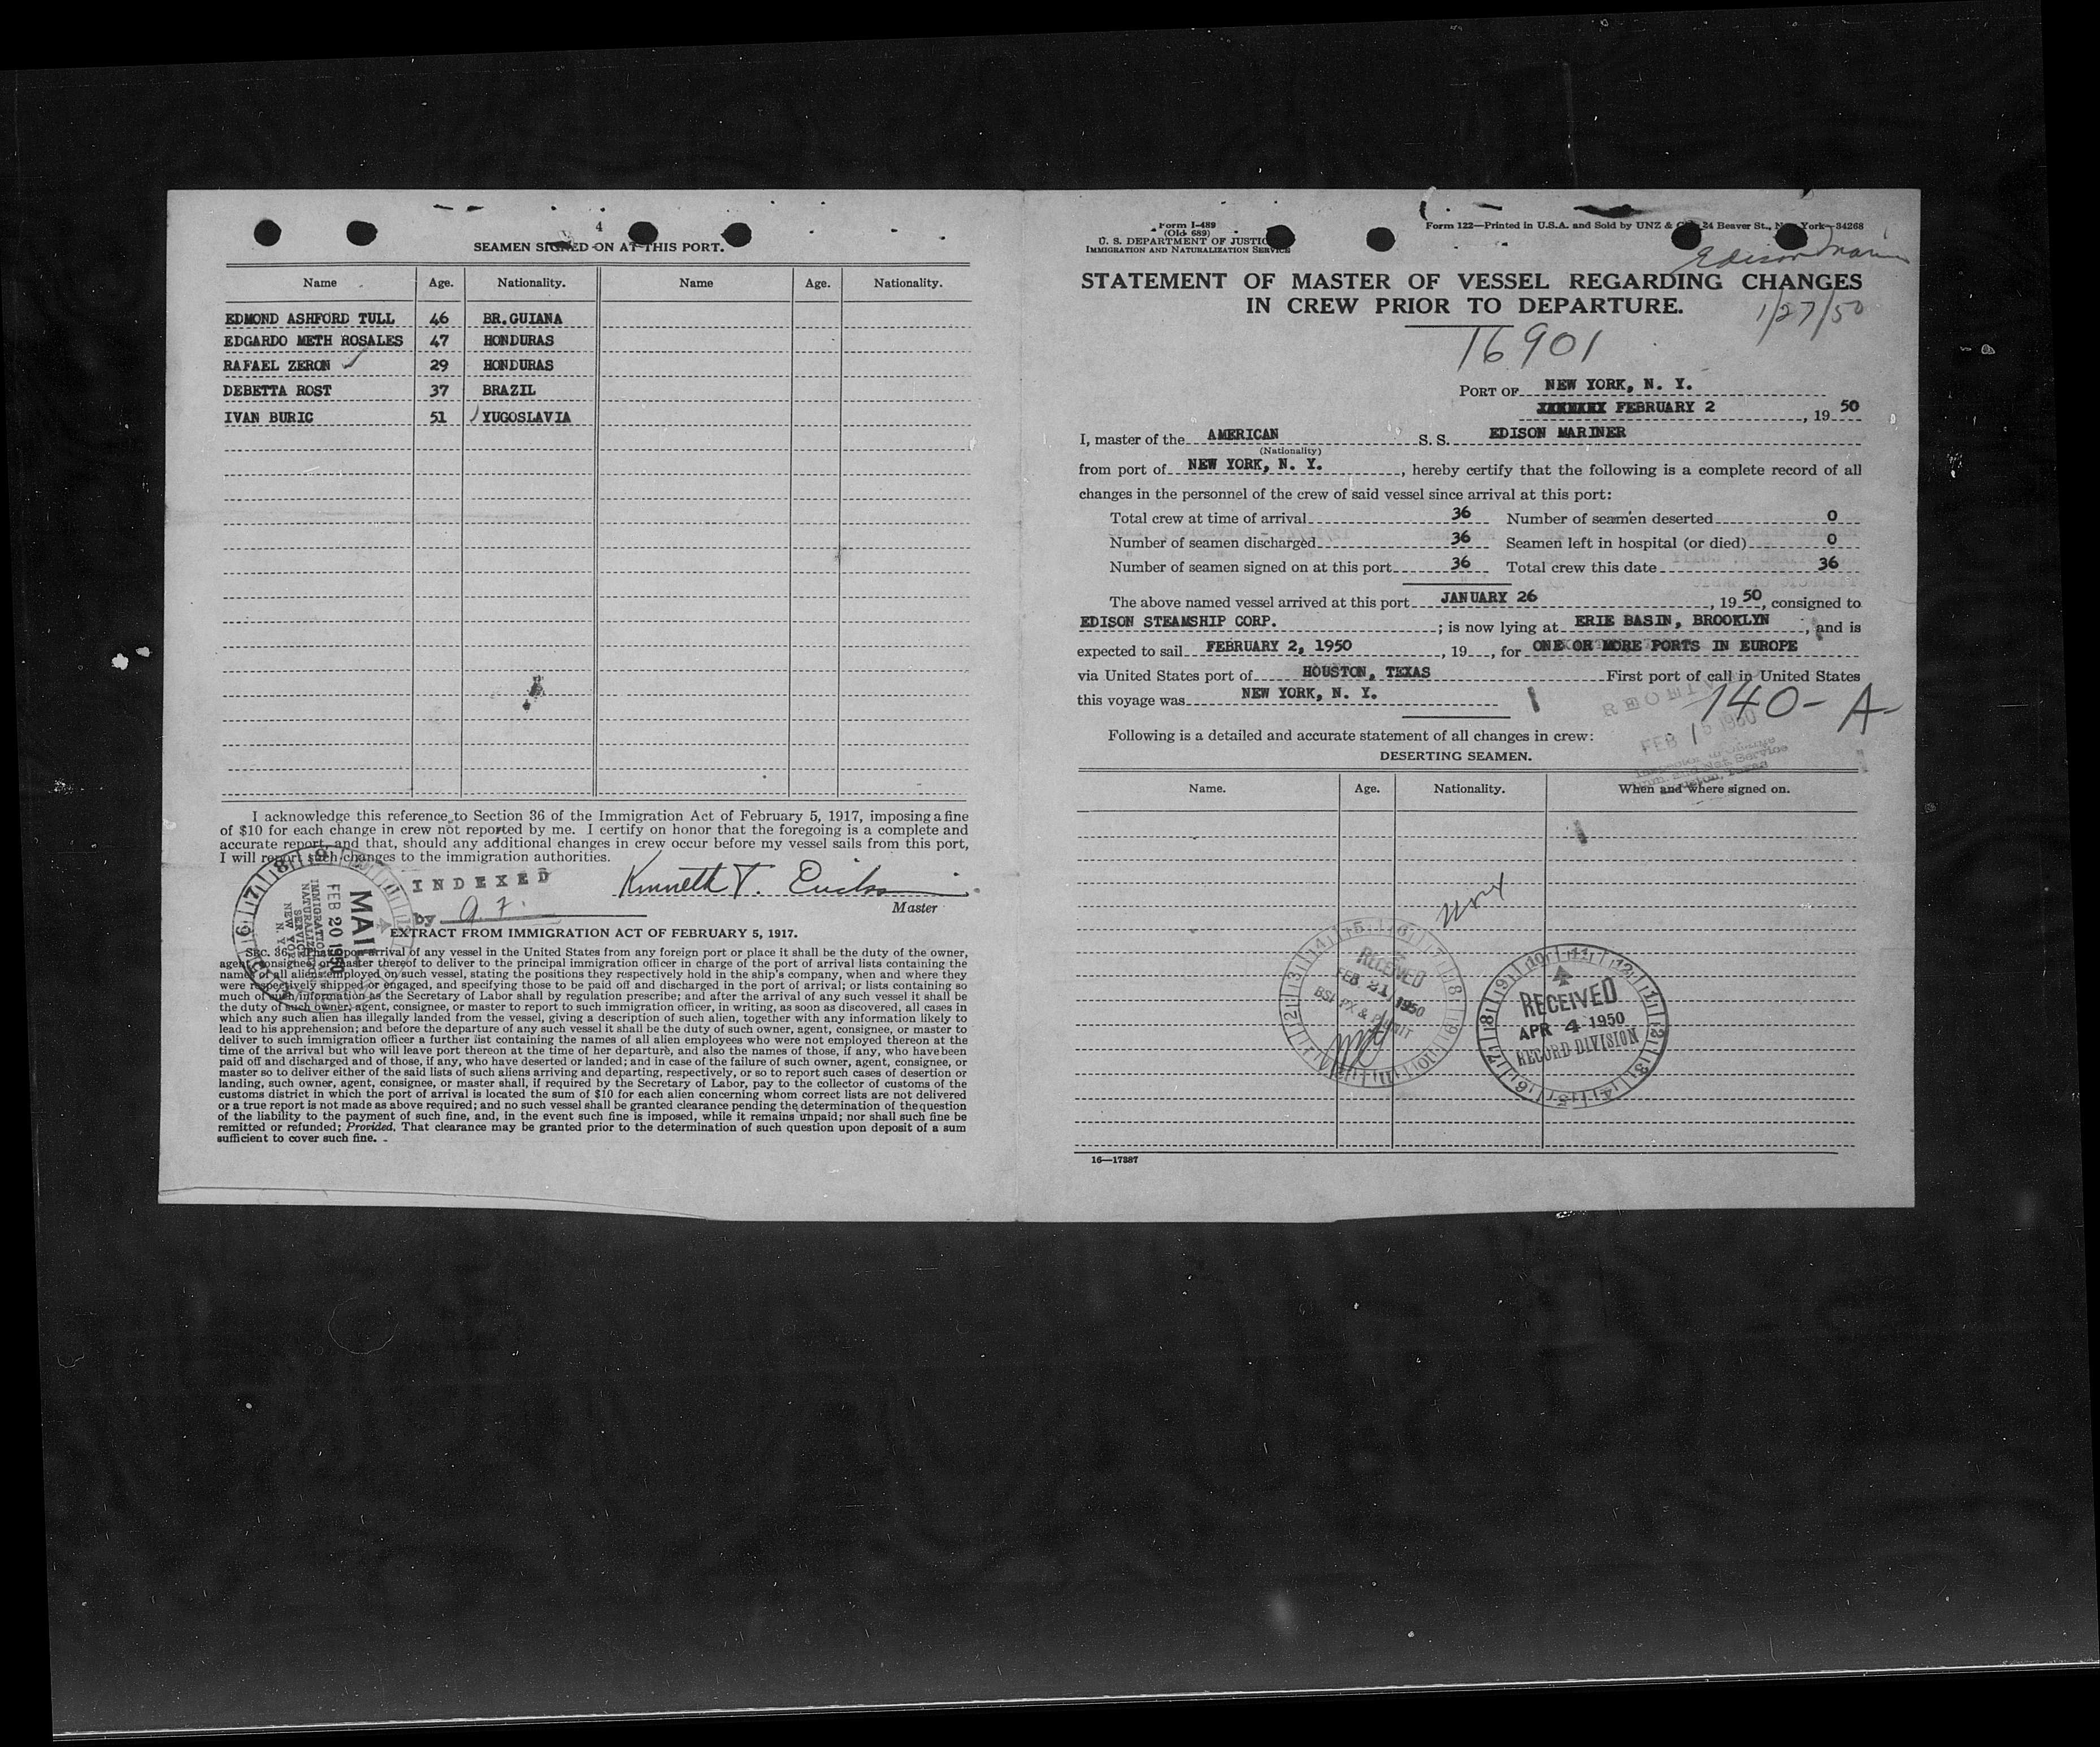 4
SEAMEN SIGNED ON AT THIS PORT.
Name Age. Nationality. Name Age. Nationality.
EDMOND ASHFORD TULL 46 BR. GUIANA
EDGARDO METH ROSALES 47 HONDURAS
RAFAEL ZERON 29 HONDURAS
DEBETTA ROST 37 BRAZIL
IVAN BURIC 51 YUGOSLAVIA
I acknowledge this reference to Section 36 of the Immigration Act of February 5, 1917, imposing a fine
of $10 for each change in crew not reported by me. I certify on honor that the foregoing is a complete and
accurate report, and that, should any additional changes in crew occur before my vessel sails from this port,
I will report such changes to the immigration authorities.
INDEXED
by
Kenneth T.
Master
MAIL
FEB 20 1950
IMMIGRATION
NATURALIZATION
SERVICE
NEW YORK
N. Y.
EXTRACT FROM IMMIGRATION ACT OF FEBRUARY 5, 1917.
Sec. 36. That upon arrival of any vessel in the United States from any foreign port or place it shall be the duty of the owner,
agent, consignee, or master thereof to deliver to the principal immigration officer in charge of the port of arrival lists containing the
names of all aliens employed on such vessel, stating the positions they respectively hold in the ship's company, when and where they
were respectively shipped or engaged, and specifying those to be paid off and discharged in the port of arrival; or lists containing so
much of such information as the Secretary of Labor shall by regulation prescribe; and after the arrival of any such vessel it shall be
the duty of such owner, agent, consignee, or master to report to such immigration officer, in writing, as soon as discovered, all cases in
which any such alien has illegally landed from the vessel, giving a description of such alien, together with any information likely to
lead to his apprehension; and before the departure of any such vessel it shall be the duty of such owner, agent, consignee, or master to
deliver to such immigration officer a further list containing the names of all alien employees who were not employed thereon at the
time of the arrival but who will leave port thereon at the time of her departure, and also the names of those, if any, who have been
paid off and discharged and of those, if any, who have deserted or landed; and in case of the failure of such owner, agent, consignee, or
master so to deliver either of the said lists of such aliens arriving and departing, respectively, or so to report such cases of desertion or
landing, such owner, agent, consignee, or master shall, if required by the Secretary of Labor, pay to the collector of customs of the
customs district in which the port of arrival is located the sum of $10 for each alien concerning whom correct lists are not delivered
or a true report is not made as above required; and no such vessel shall be granted clearance pending the determination of the question
of the liability to the payment of such fine, and, in the event such fine is imposed, while it remains unpaid; nor shall such fine be
remitted or refunded; Provided, That clearance may be granted prior to the determination of such question upon deposit of a sum
sufficient to cover such fine.
Form I-489
(Old 689)
U. S. DEPARTMENT OF JUSTICE
IMMIGRATION AND NATURALIZATION SERVICE
Form 122—Printed in U.S.A. and Sold by UNZ & Co., 24 Beaver St., New York—34268
Edison Mariner
STATEMENT OF MASTER OF VESSEL REGARDING CHANGES
IN CREW PRIOR TO DEPARTURE.
1/27/50
T6901
PORT OF NEW YORK, N. Y.
FEBRUARY 2, 1950
I, master of the AMERICAN S. S. EDISON MARINER
(Nationality)
from port of NEW YORK, N. Y., hereby certify that the following is a complete record of all
changes in the personnel of the crew of said vessel since arrival at this port:
Total crew at time of arrival 36 Number of seamen deserted 0
Number of seamen discharged 36 Seamen left in hospital (or died) 0
Number of seamen signed on at this port 36 Total crew this date 36
The above named vessel arrived at this port JANUARY 26, 1950, consigned to
EDISON STEAMSHIP CORP.; is now lying at ERIE BASIN, BROOKLYN, and is
expected to sail FEBRUARY 2, 1950, 19, for ONE OR MORE PORTS IN EUROPE
via United States port of HOUSTON, TEXAS First port of call in United States
this voyage was NEW YORK, N. Y.
140-A-
FEB 1950
Following is a detailed and accurate statement of all changes in crew:
DESERTING SEAMEN.
Name. Age. Nationality. When and where signed on.
none
RECEIVED
FEB 21 1950
BSI PX & PERMIT
RECEIVED
APR 4 1950
RECORD DIVISION
16—17387